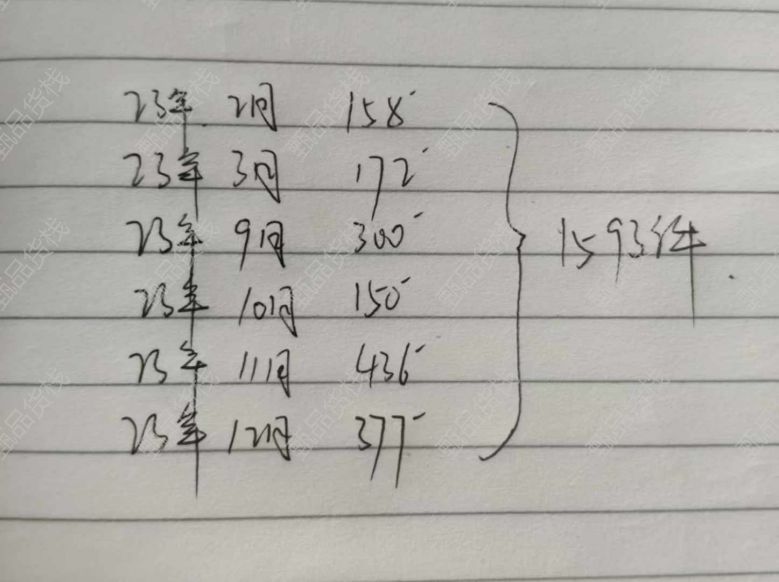 23年 2月 158
23年 3月 172
23年 9月 300
23年 10月 150
23年 11月 436
23年 12月 377
1593件